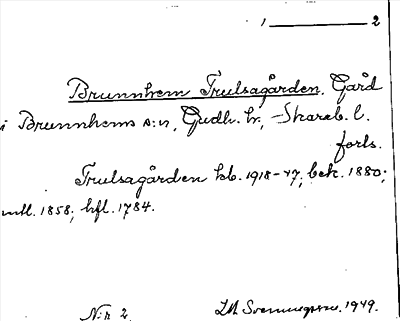 1 ——— 2
Brunnhem Trulsagården. Gård
i Brunnhems s:n, Gudh. hr, Skarab. l.
forts.
Trulsagården kb. 1918-47; bek. 1880;
mtl. 1858; hfl. 1784.
N:r 2. 1949.